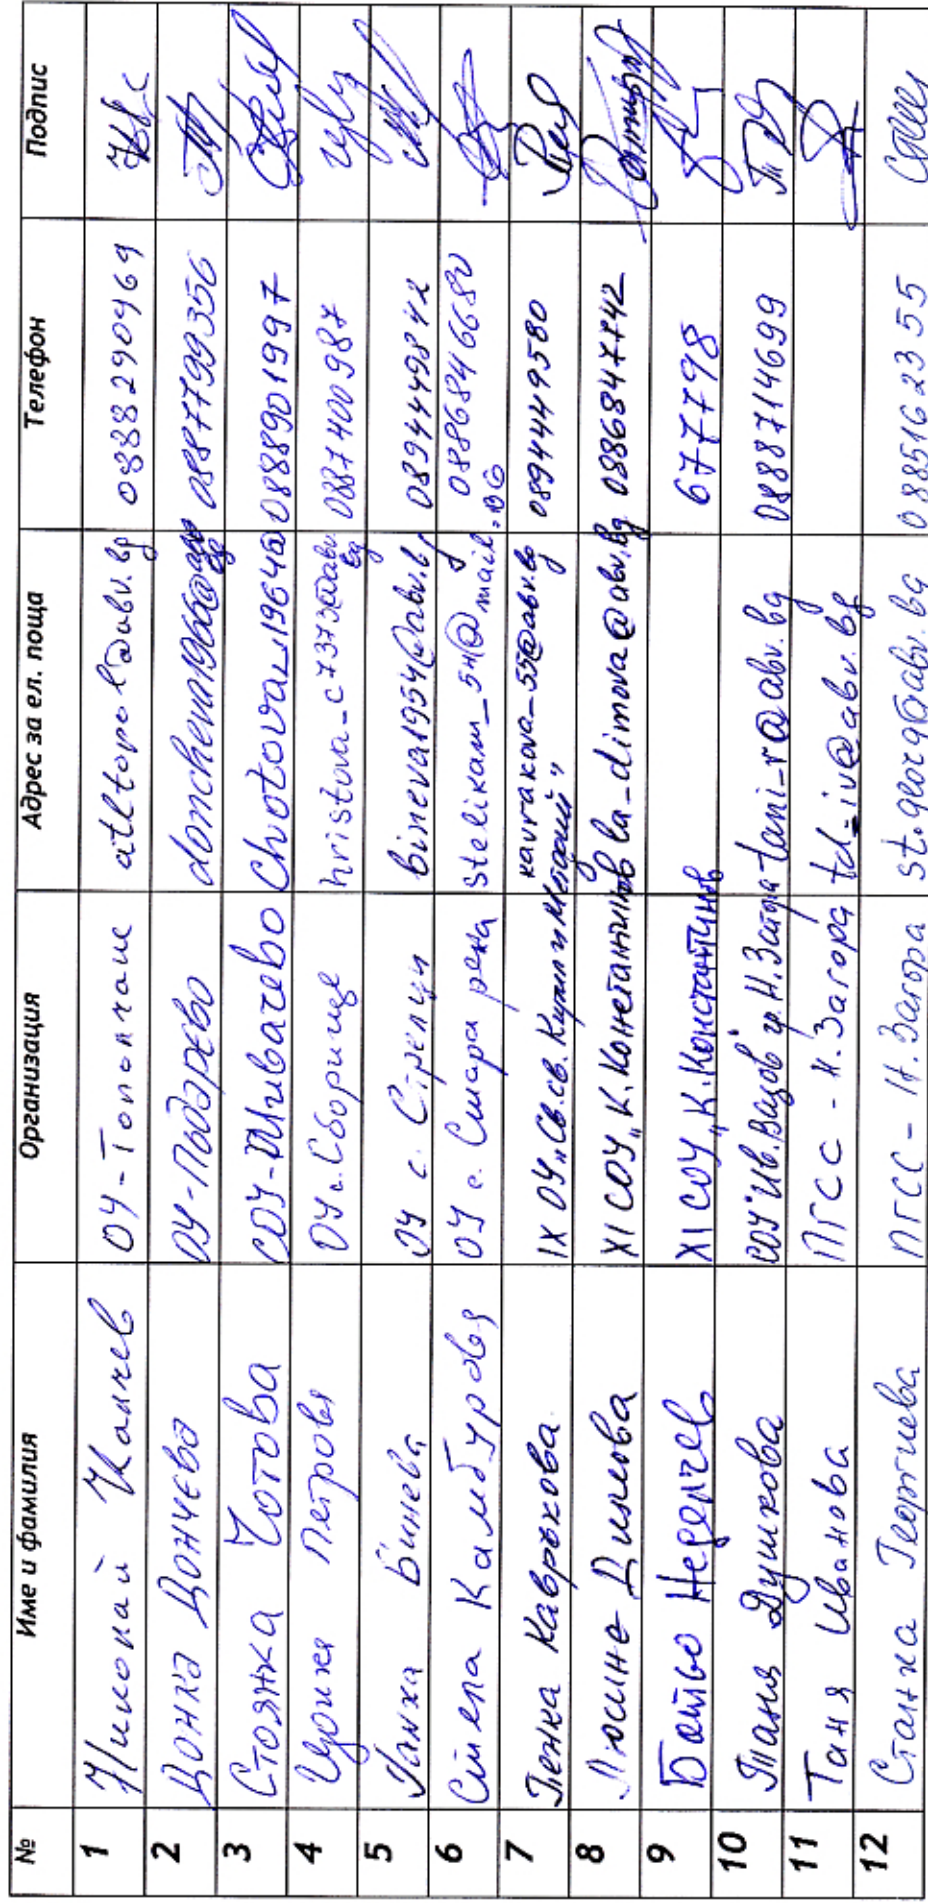 № Име и фамилия Организация Адрес за ел. поща Телефон Подпис
1 Николай Колчев ОУ-Тополчане 0888290469
2 Донка Дончева ОУ-Медорево 0887799356
3 Стоянка Чотова СОУ-Шивачево Chotova_1964@ 0888901997
4 Цонка Петрова ОУ с. Сборище hristova_c7373@abv.bg 0887400987
5 Бинева ОУ с. Стрелци bineva1954@abv.b 0894449842
6 Стела Камбурова ОУ с. Стара река stelikam_54@mail.BG 0886846680
7 Пенка Кавръкова IX ОУ „Св. св. Кирил и Методий" kavrakova_55@abv.bg 0894449580
8 Люсине Димова XI СОУ „К. Константинов la_dimova@abv.bg 0886847742
9 Ботьо Неделчев XI СОУ „К. Константинов 677798
10 Таня Душкова СОУ "Ив. Вазов" гр. Н. Загора tani_r@abv.bg 0887714699
11 Таня Иванова ПГСС - Н. Загора td_iv@abv.bg
12 Станка Георгиева ПГСС - Н. Загора st.georg@abv.bg 0885162355